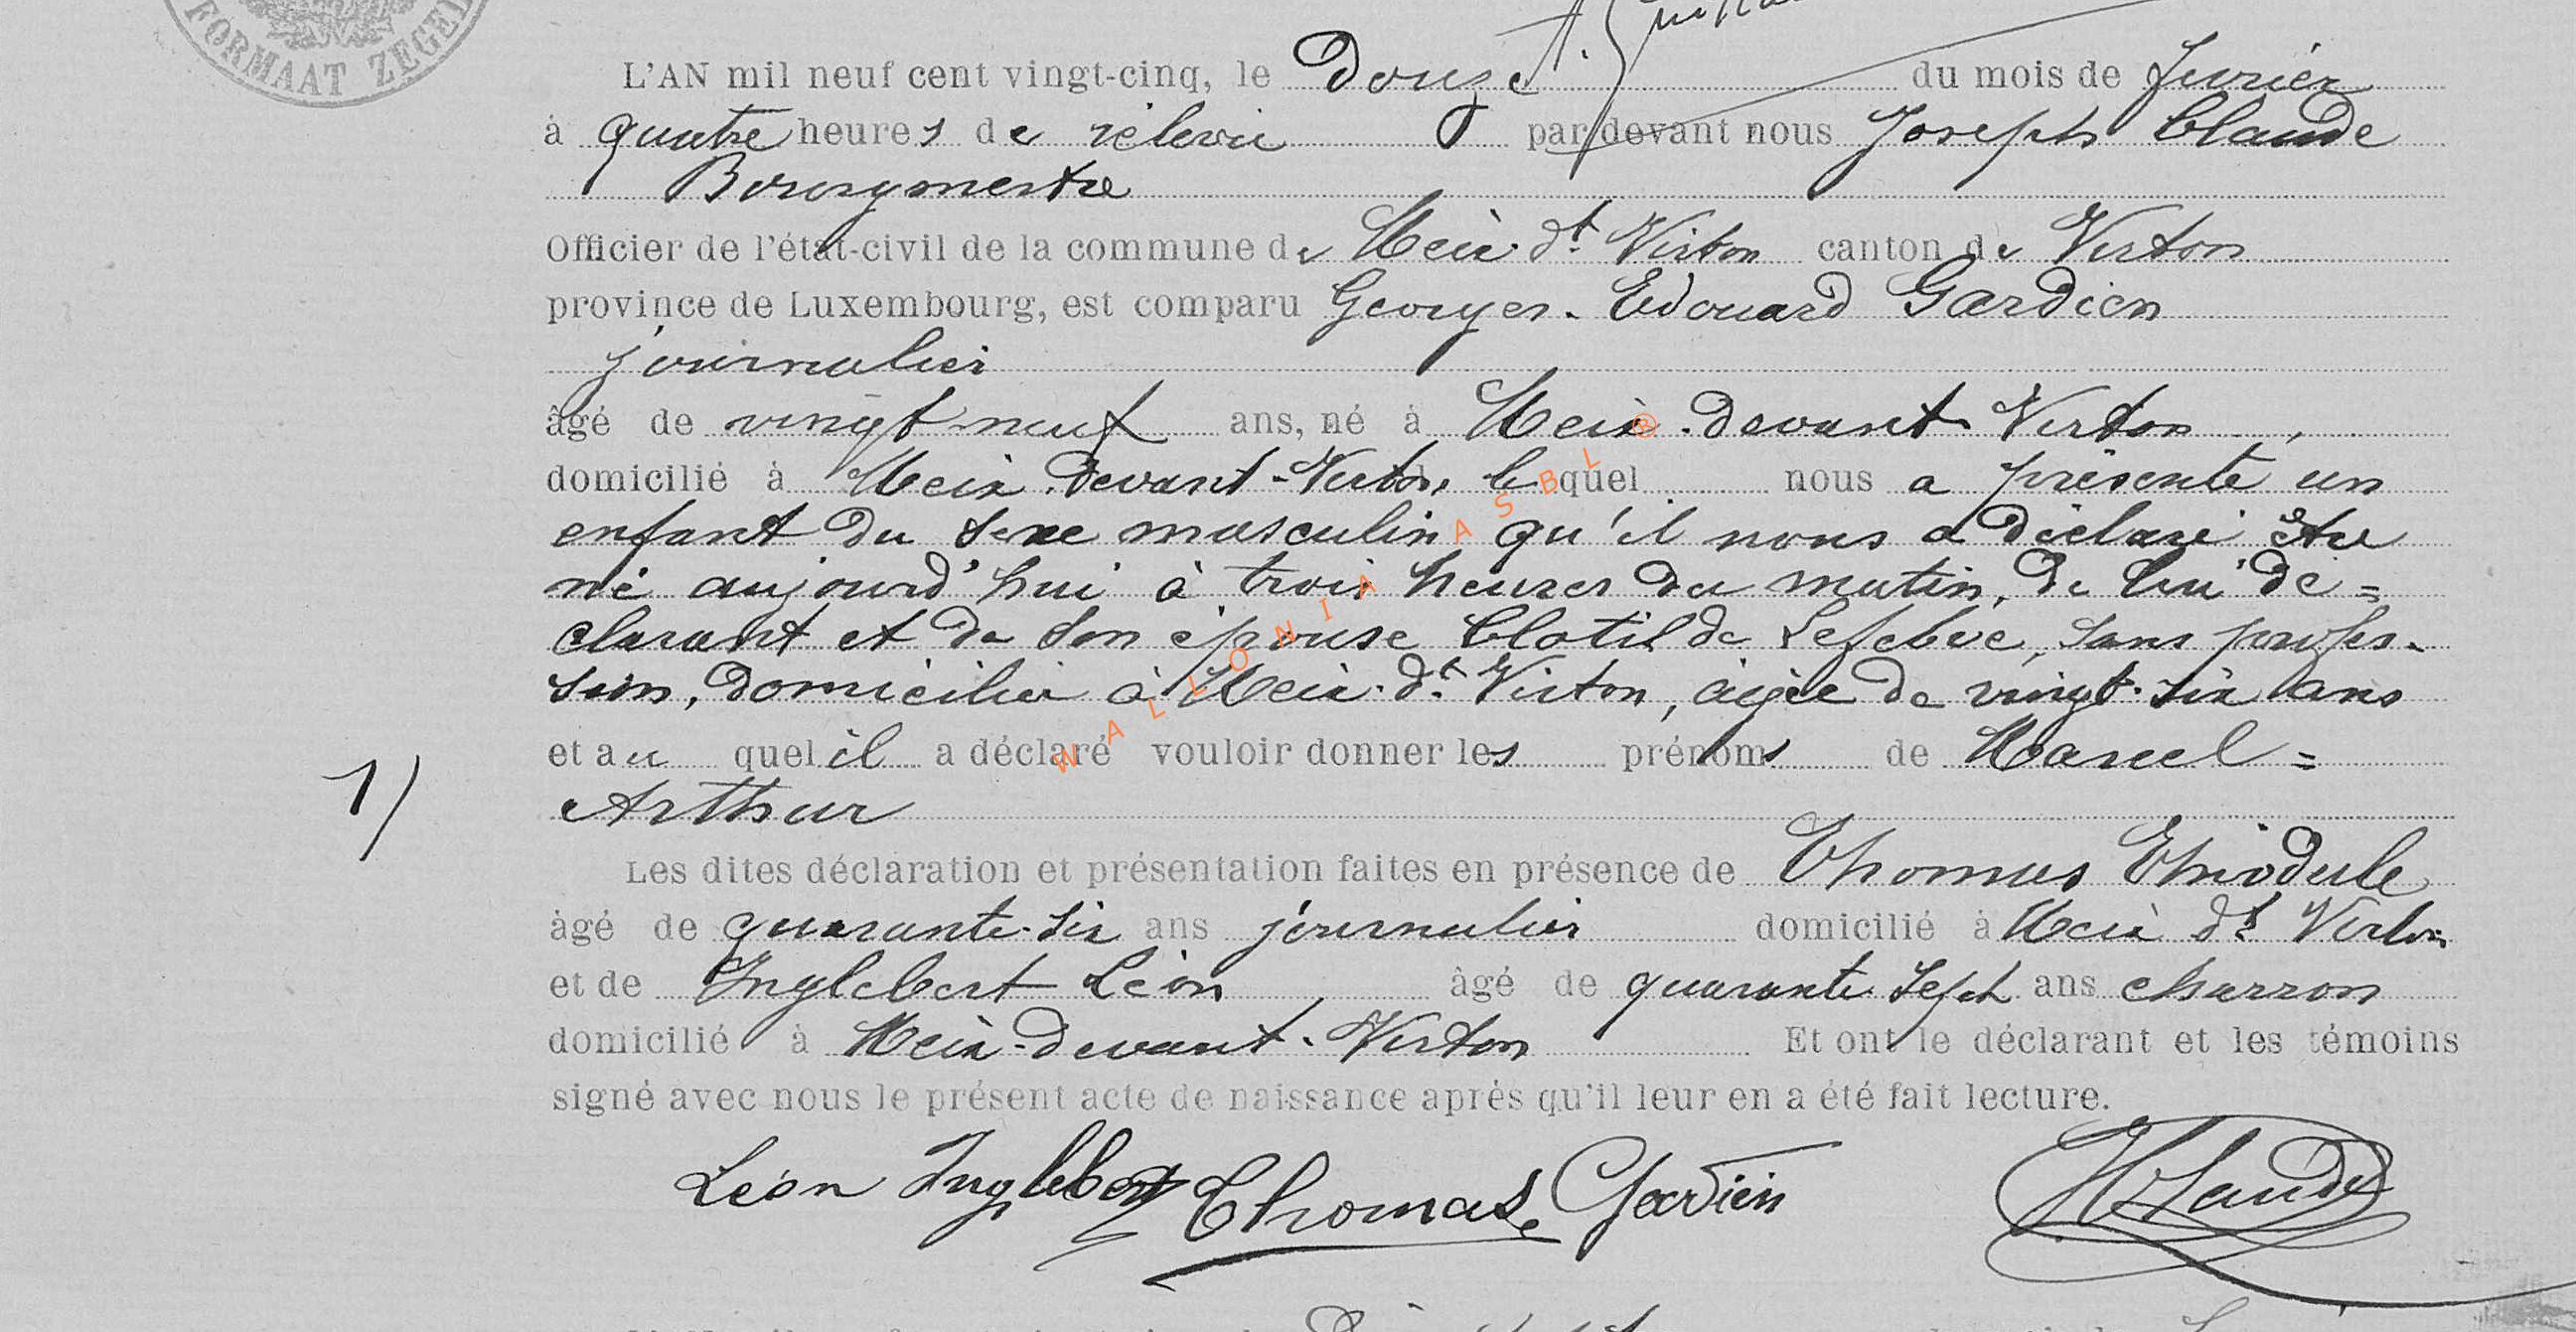 FORMAAT ZEGEL
L'AN mil neuf cent vingt-cinq, le Douze du mois de fevrier
à quatre heures de rélevée par devant nous Joseph Claude
Bourgmestre
Officier de l'état-civil de la commune de Meix dt Virton canton de Virton
province de Luxembourg, est comparu Georges. Edouard Gardien
journalier
âgé de vingt neuf ans, né à Meix-devant Virton,
domicilié à Meix devant-Virton, lequel nous a présenté un
enfant du sexe masculin qu'il nous a déclaré être
né aujourd'hui à trois heures du matin, de lui dé=
clarant et de son épouse Clotilde Lefebve, sans profes-
sion, domiciliée à Meix-dt Virton, âgée de vingt-six ans
et au quel il a déclaré vouloir donner les prénoms de Marcel=
1) Arthur
Les dites déclaration et présentation faites en présence de Thomas Théodule
âgé de quarante-six ans journalier domicilié à Meix dt Virton
et de Inglebert Léon, âgé de quarante sept ans charron
domicilié à Meix-devant-Virton Et ont le déclarant et les témoins
signé avec nous le présent acte de naissance après qu'il leur en a été fait lecture.
Léon Inglebert Thomas Gardien JClaude
WALLONIA ASBL ®